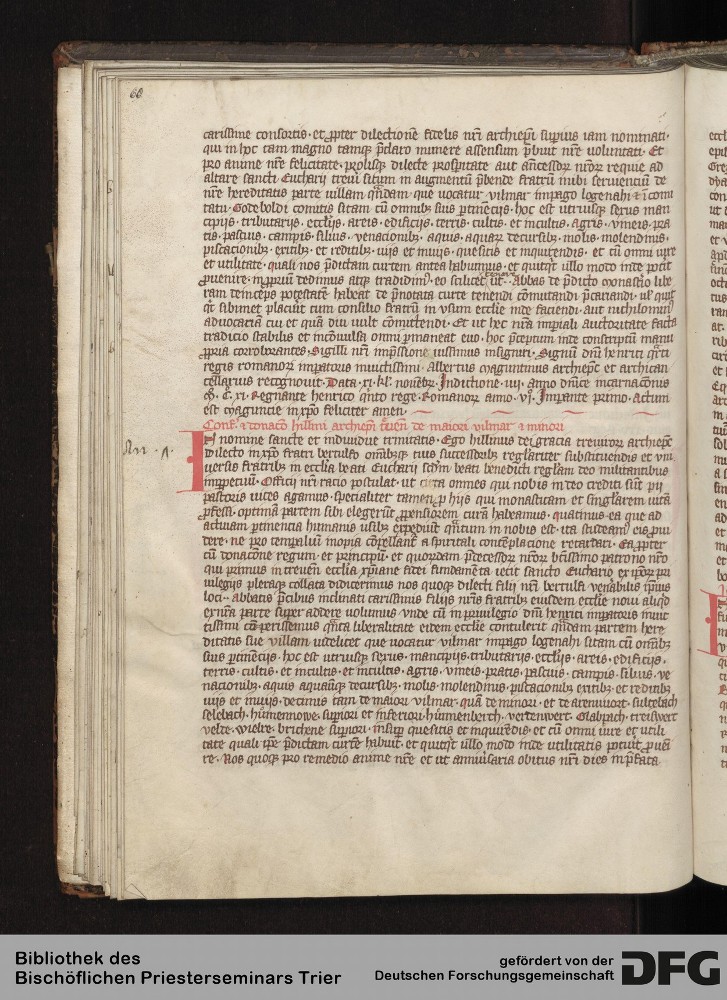 60
carissime consortis · et ꝓpter dilectionē fidelis nr̄i archiepī suꝑius iam nominati ·
qui in hoc tam magno tamqꝫ p̄claro munere assensum p̄buit nr̄e voluntati · Et
pro anime nr̄e felicitate · prolisqꝫ dilecte prosꝑitate aut an̄cessoꝝ nr̄oꝝ requie ad
altare sancti Eucharij treuī situm in augmentū p̄bende fratrū inibi seruiencium de
nr̄e hereditatis parte uillam qn̄dam que uocatur vilmar in pago logenahi ⁊ ī comi
tatu · Godeboldi comitis sitam cū omnibꝫ suis ꝑtinēcijs · hoc est utriusqꝫ sexus man
cipijs · tributarijs · ecclījs · areis · edificijs · terris · cultis · et incultis · agris · vineis · pra
tis · pascuis · campis · siluis · venacionibꝫ · aquis · aquaꝝ decursibꝫ · molis · molendinis ·
piscacionibꝫ · exitibꝫ · et reditibꝫ · uijs et inuijs · quesitis et inquirendis · et cū omni iure
et utilitate · quali nos p̄dictam curtem antea habuimus · et quitqt̄ ullo modo inde potit
ꝓuenire · in ꝓpriū dedimus atqꝫ tradidimꝰ · eo scilicet tenore ut · Abbas de p̄dicto monastīo libe
ram deinceps potestatē habeat de p̄notata curte tenendi cōmutandi p̄carandi · ul̄ quit
qt̄ sibimet placuit tum consilio fratrū in vsum ecclīe inde faciendi · aut nichilominꝰ
aduocaciā cui et quā diu uult cōmittendi · Et ut hec nr̄a impīali auctoritate facta
tradicio stabilis et incōuulsa omni ꝑmaneat euo · hoc p̄ceptum inde conscriptū manu
ꝓpria corroborantes · sigilli nr̄i imp̄ssione iussimus insigniri · Signū dn̄i henrici qn̄ti
regis romanoꝝ impatoris inuictissimi · Albertus maguntinus archiepc̄ et archican
cellarius recognouit · Data · xi · kl̄ · nouēbꝛ · Indictione · iiij · anno dn̄ice incarnacōnis
m̄ · c̄ · xi · Regnante henrico qn̄to rege · Romanoꝝ anno · vj · Impante primo · Actum
est maguncie in xp̄o feliciter amen ·
Conf̄ · ⁊ donacō hillini archiepī treueñ de maiori vilmar ⁊ minori
In nomine sancte et indiuidue trinitatis · Ego hillinus dei gracia treuiroꝝ archiepc̄
dilecto in xp̄o fratri bertulfo om̄ibꝫqꝫ tuis successoribꝫ regl̄ariter substituendis et vni
uersis fratribꝫ in ecclīa beati Eucharij scd̄m beati benedicti regl̄am deo militantibus
imppetuū · Officij nr̄i racio postulat · ut cūcta omnes qui nobis in deo crediti sūt pij
pastoris uices agamus · specialiter tamen ꝓ hijs qui monasticam et singl̄arem uitā
ꝓfessi · optimā partem sibi elegerūt ꝓpensiorem curā habeamus · quatinus ea que ad
actiuam ꝑtinencia humanis usibꝫ expediūt qn̄tum in nobis est · ita studeamꝰ eis ꝓui
dere · ne pro temꝑaliū inopia cōpellant̄ a spirituali contēplacione retardari · Ea ꝓpter
cū donacōne regum · et principū · et quordam p̄decessoꝝ nr̄oꝝ btīssimo patrono nr̄o
qui primus in treueñ ecclīa xp̄iane fidei fundamēta iecit sancto Euchario ex ip̄oꝝ pri
uilegijs pleraqꝫ collata didicerimus nos quoqꝫ dilecti filij nr̄i bertulfi ven̄abilis ip̄sius
loci ·· abbatis p̄cibus inclinati carissimis filijs nr̄is fratribꝫ eiusdem ecclīe noui aliqd̄
ex nr̄a parte suꝑ addere uolumus · vnde cū in priuilegio dn̄i henrici impatoris inuic
tissimi cō̄ꝑerissemus qn̄ta liberalitate eidem ecclīe contulerit qn̄dam partem here
ditatis sue villam uidelicet que uocatur vilmar in pago logenahi sitam cū om̄ibꝫ
suis ꝑtinēcijs · hoc est utriusqꝫ sexus · mancipijs · tributarijs · ecclījs · areis · edificijs ·
terris · cultis · et incultis · et incultis · agris · vineis · pratis · pascuis · campis · siluis · ve
nacionibꝫ · aquis aquarūqꝫ decursibꝫ · molis · molendinis · piscacionibꝫ exitibꝫ · et reditibꝫ
uijs et inuijs · decimis tam de maiori vilmar · quā de minori · et de areninort · sultebach
selebach · hūmennowe · suꝑiori et inferiori · hūmenberch · vertenwert · Glabpach · treiswert
velde · wielre · brichene suꝑiori · insuꝑ quesitis et inquirēdis · et cū omni iure et utili
tate quali ip̄e p̄dictam curtē habuit · et quitqt̄ ullo modo inde utilitatis potuit ꝓueni
re · Nos quoqꝫ pro remedio anime nr̄e et ut anniu̓saria obitus nr̄i dies in p̄fata
Bibliothek des
Bischöflichen Priesterseminars Trier
gefördert von der
Deutschen Forschungsgemeinschaft
DFG